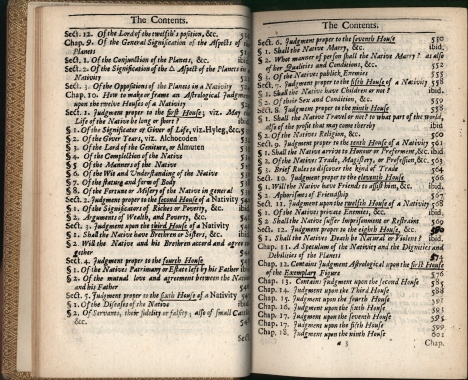 The Contents.
Sect. 12. Of the Lord of the twelfth's position, &c.
Chap. 9. Of the General Signification of the Aspects of the
Planets
Sect. 1. Of the Conjunction of the Planets, &c. ibid.
Sect. 2. Of the Signification of the Aspect of the Planets in a
Nativity
Sect. 3. Of the Oppositions of the Planets in a Nativity
Chap. 10. How to make or frame an Astrological Judgment
upon the twelve Houses of a Nativity
Sect. 1. Judgment proper to the first House; viz. May the
Life of the Native be long or short ibid.
§ 1. Of the Significator or Giver of Life, viz. Hyleg, &c.
§ 2. Of the Giver Years, viz. Alchocoden
§ 3. Of the Lord of the Geniture, or Almuten
§ 4. Of the Complection of the Native
§ 5. Of the Manners of the Native
§ 6. Of the Wit and Understanding of the Native
§ 7. Of the stature and form of Body
§ 8. Of the Fortune or Misery of the Native in general
Sect. 2. Judgment proper to the second House of a Nativity
§ 1. Of the Significators of Riches, or Poverty, &c. ibid.
§ 2. Arguments of Wealth, and Poverty, &c.
Sect. 3. Judgment upon the third House of a Nativity
§ 1. Shall the Native have Brethren or Sisters, &c. ibid.
§ 2. Will the Native and his Brethren accord and agree to-
gether
Sect. 4. Judgment proper to the fourth House
§ 1. Of the Natives Patrimony or Estate left by his Father ibid.
§ 2. Of the mutual love and agreement between the Native
and his Father
Sect. 5. Judgment proper to the sixth House of a Nativity
§ 1. Of the Diseases of the Native
§ 2. Of Servants, their fidelity or falsity; also of small Cattle
&c.
Sect.
The Contents.
Sect. 6. Judgment proper to the seventh House 550
§ 1. Shall the Native Marry, &c. ibid.
§ 2. What manner of person shall the Native Marry? as also
of her Qualities and Conditions, &c. 552
§ 3. Of the Natives publick Enemies 555
Sect. 7. Judgment proper to the fifth House of a Nativity 558
§ 1. Shall the Native have Children or no? ibid.
§ 2. Of their Sex and Condition, &c. 559
Sect. 8. Judgment proper to the ninth House
§ 1. Shall the Native Travel or not? to what part of the world,
also of the profit that may come thereby ibid.
§ 2. Of the Natives Religion, &c. 560
Sect. 9. Judgment proper to the tenth House of a Nativity 561
§ 1. Shall the Native arrive to Honour or Preferment, &c. ibid.
§ 2. Of the Natives Trade, Magistery, or Profession, &c. 563
§ 3. Brief Rules to discover the kind of Trade 564
Sect. 10. Judgment proper to the eleventh House 566
§ 1. Will the Native have Friends to assist him, &c. ibid.
§ 2. Aphorisms of Friendship 567
Sect. 11. Judgment upon the twelfth House of a Nativity 568
§ 1. Of the Natives private Enemies, &c. ibid.
§ 2. Shall the Native suffer Imprisonment or Restraint
Sect. 12. Judgment proper to the eighth House, &c.
§ 1. Shall the Natives Death be Natural or Violent? ibid.
Chap. 11. A Speculum of the Nativity and the Dignities and
Debilities of the Planets
Chap. 12. Contains Judgment Astrological upon the first House
of the Exemplary Figure 576
Chap. 13. Contains Judgment upon the second House 585
Chap. 14. Judgment upon the Third House 588
Chap. 15. Judgment upon the fourth House 591
Chap. 16. Judgment upon the sixth House 593
Chap. 17. Judgment upon the seventh House 595
Chap. 17. Judgment upon the fifth House 599
Chap. 18. Judgment upon the ninth House 601
a 3 Chap.